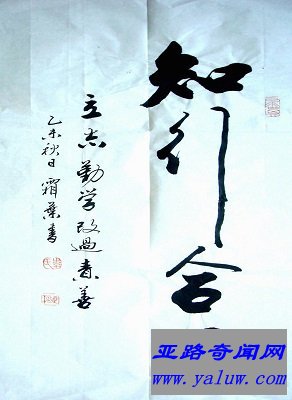 知行合
立志勤学改過责善
乙未秋日霜葉書
亚路奇闻网
www.yaluw.com